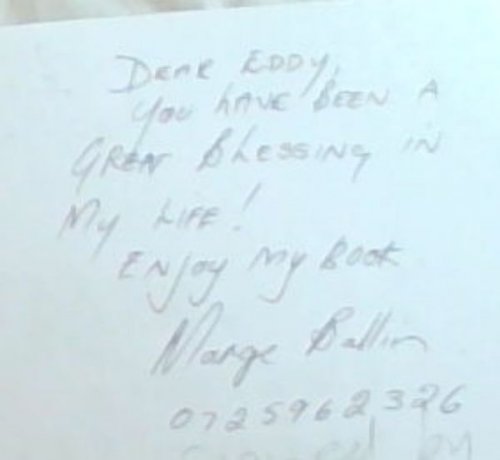 Dear Eddy,
You have been a
Great Blessing in
My Life!
Enjoy my Book
Marge Ballin
0725962326
by